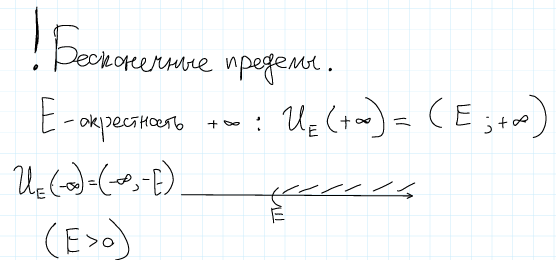 ! Бесконечные пределы.
E - окрестность +∞ : U_E (+∞) = (E ; +∞)
U_E (-∞) = (-∞, -E)
E
(E > 0)